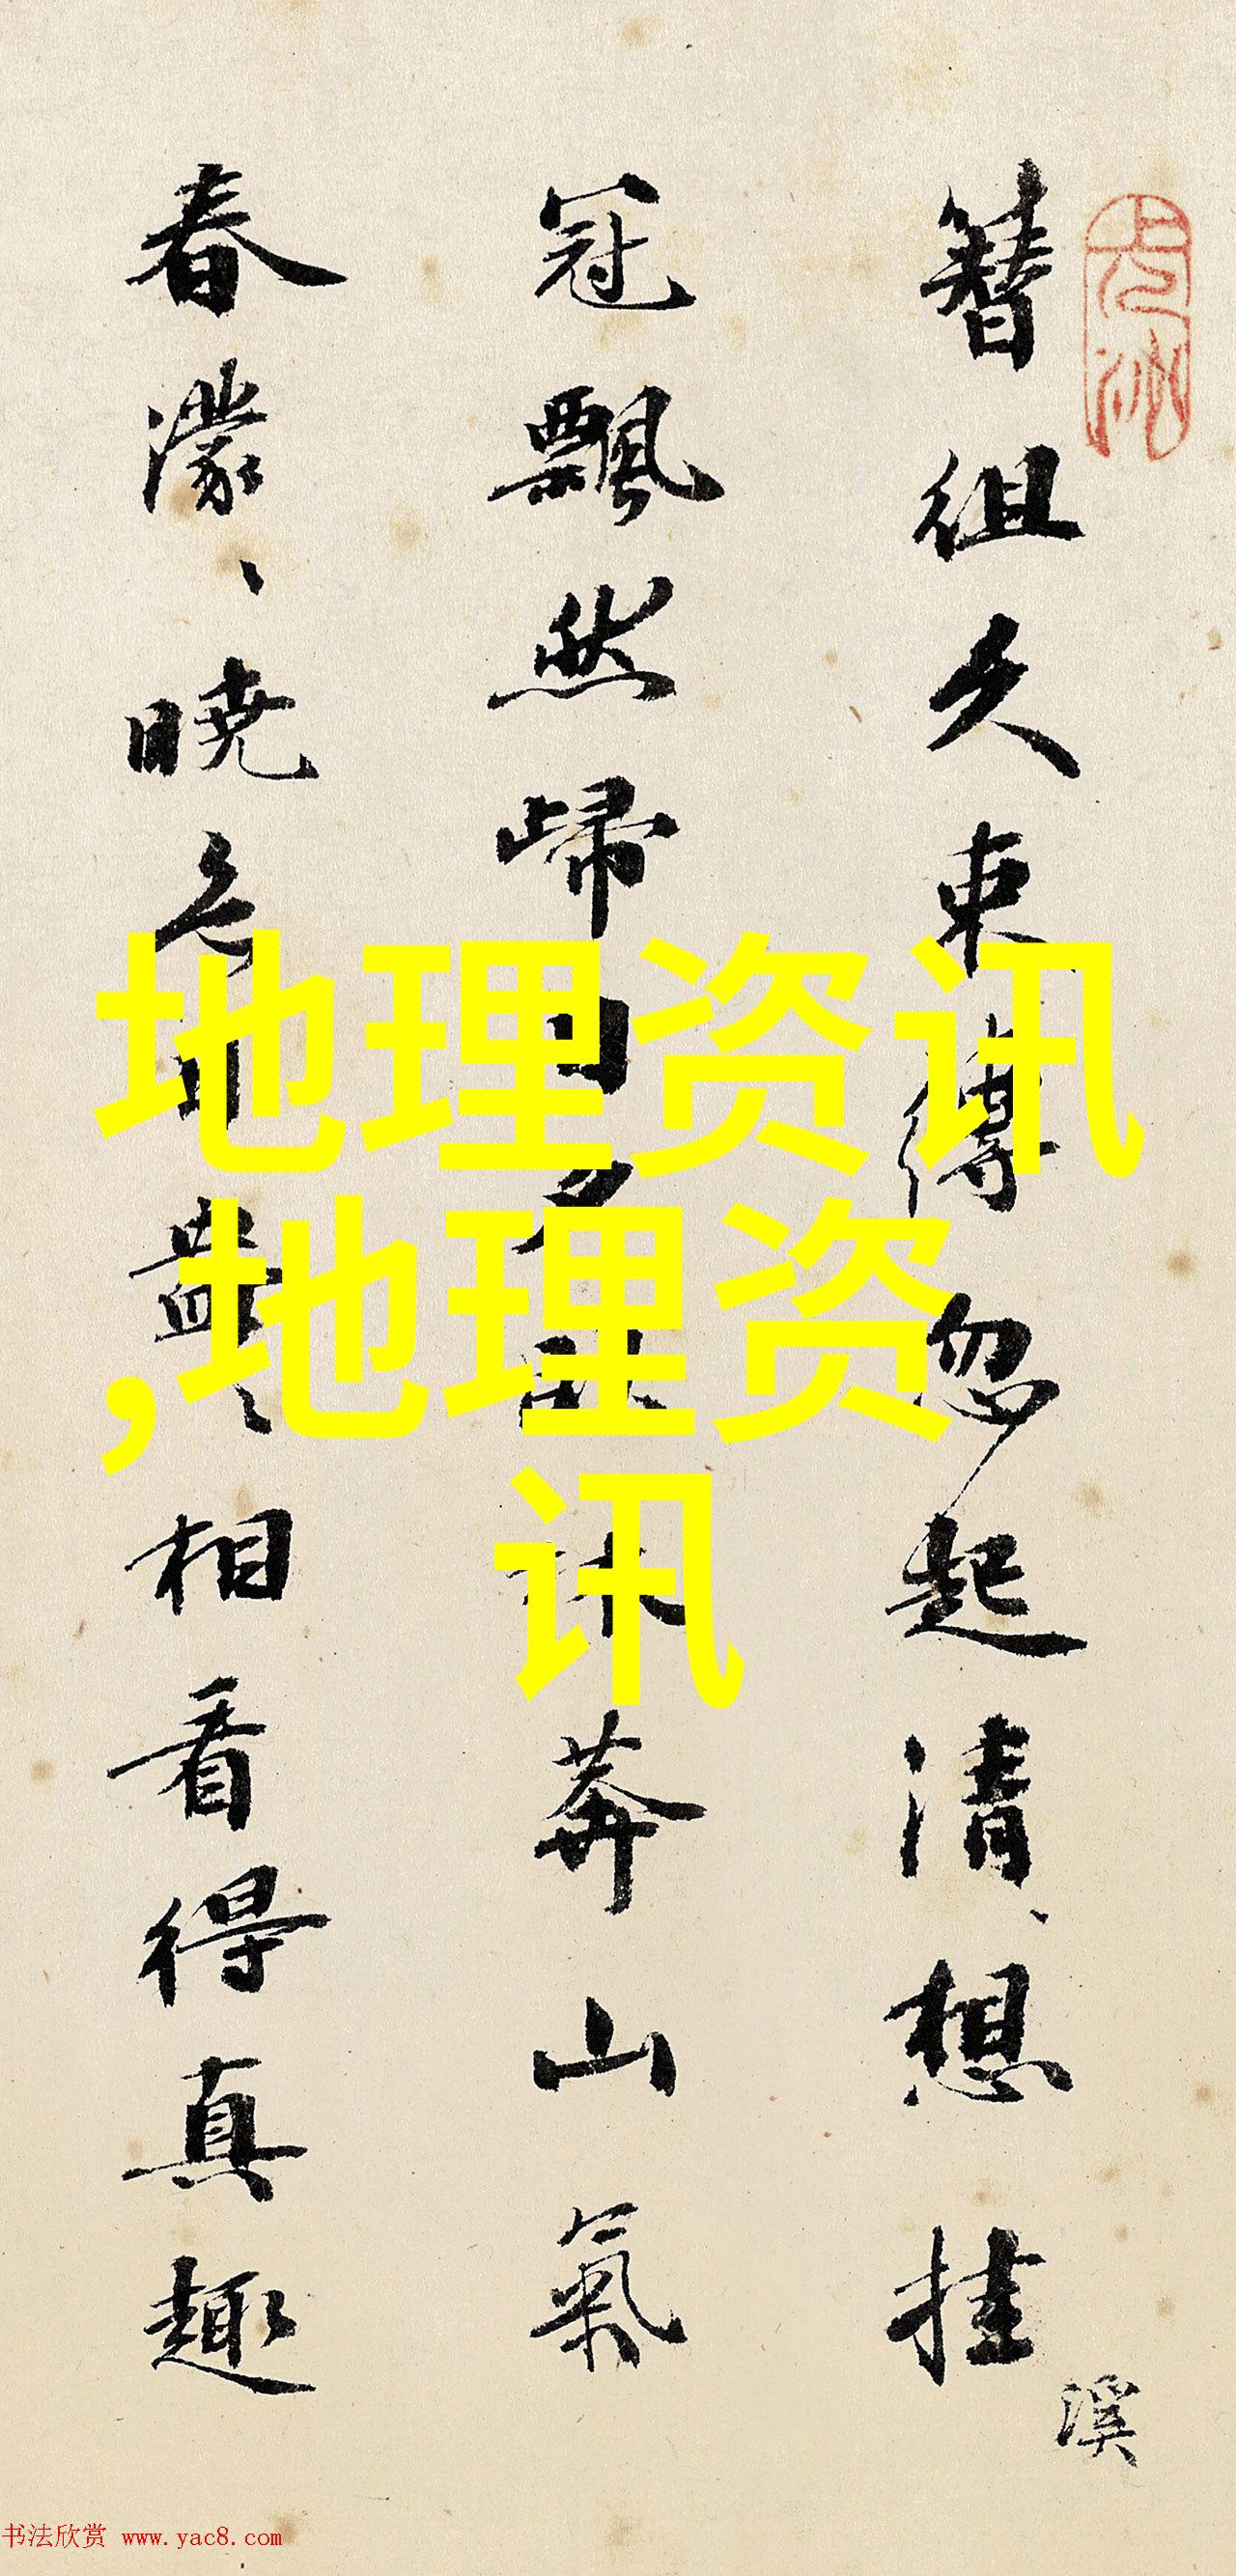 簪组久束缚忽起清、想挂
溪
冠飘然归
莽山气
春蒙、晓色
相看得真趣
地理资讯
,地理资
讯
书法欣赏 www.yac8.com